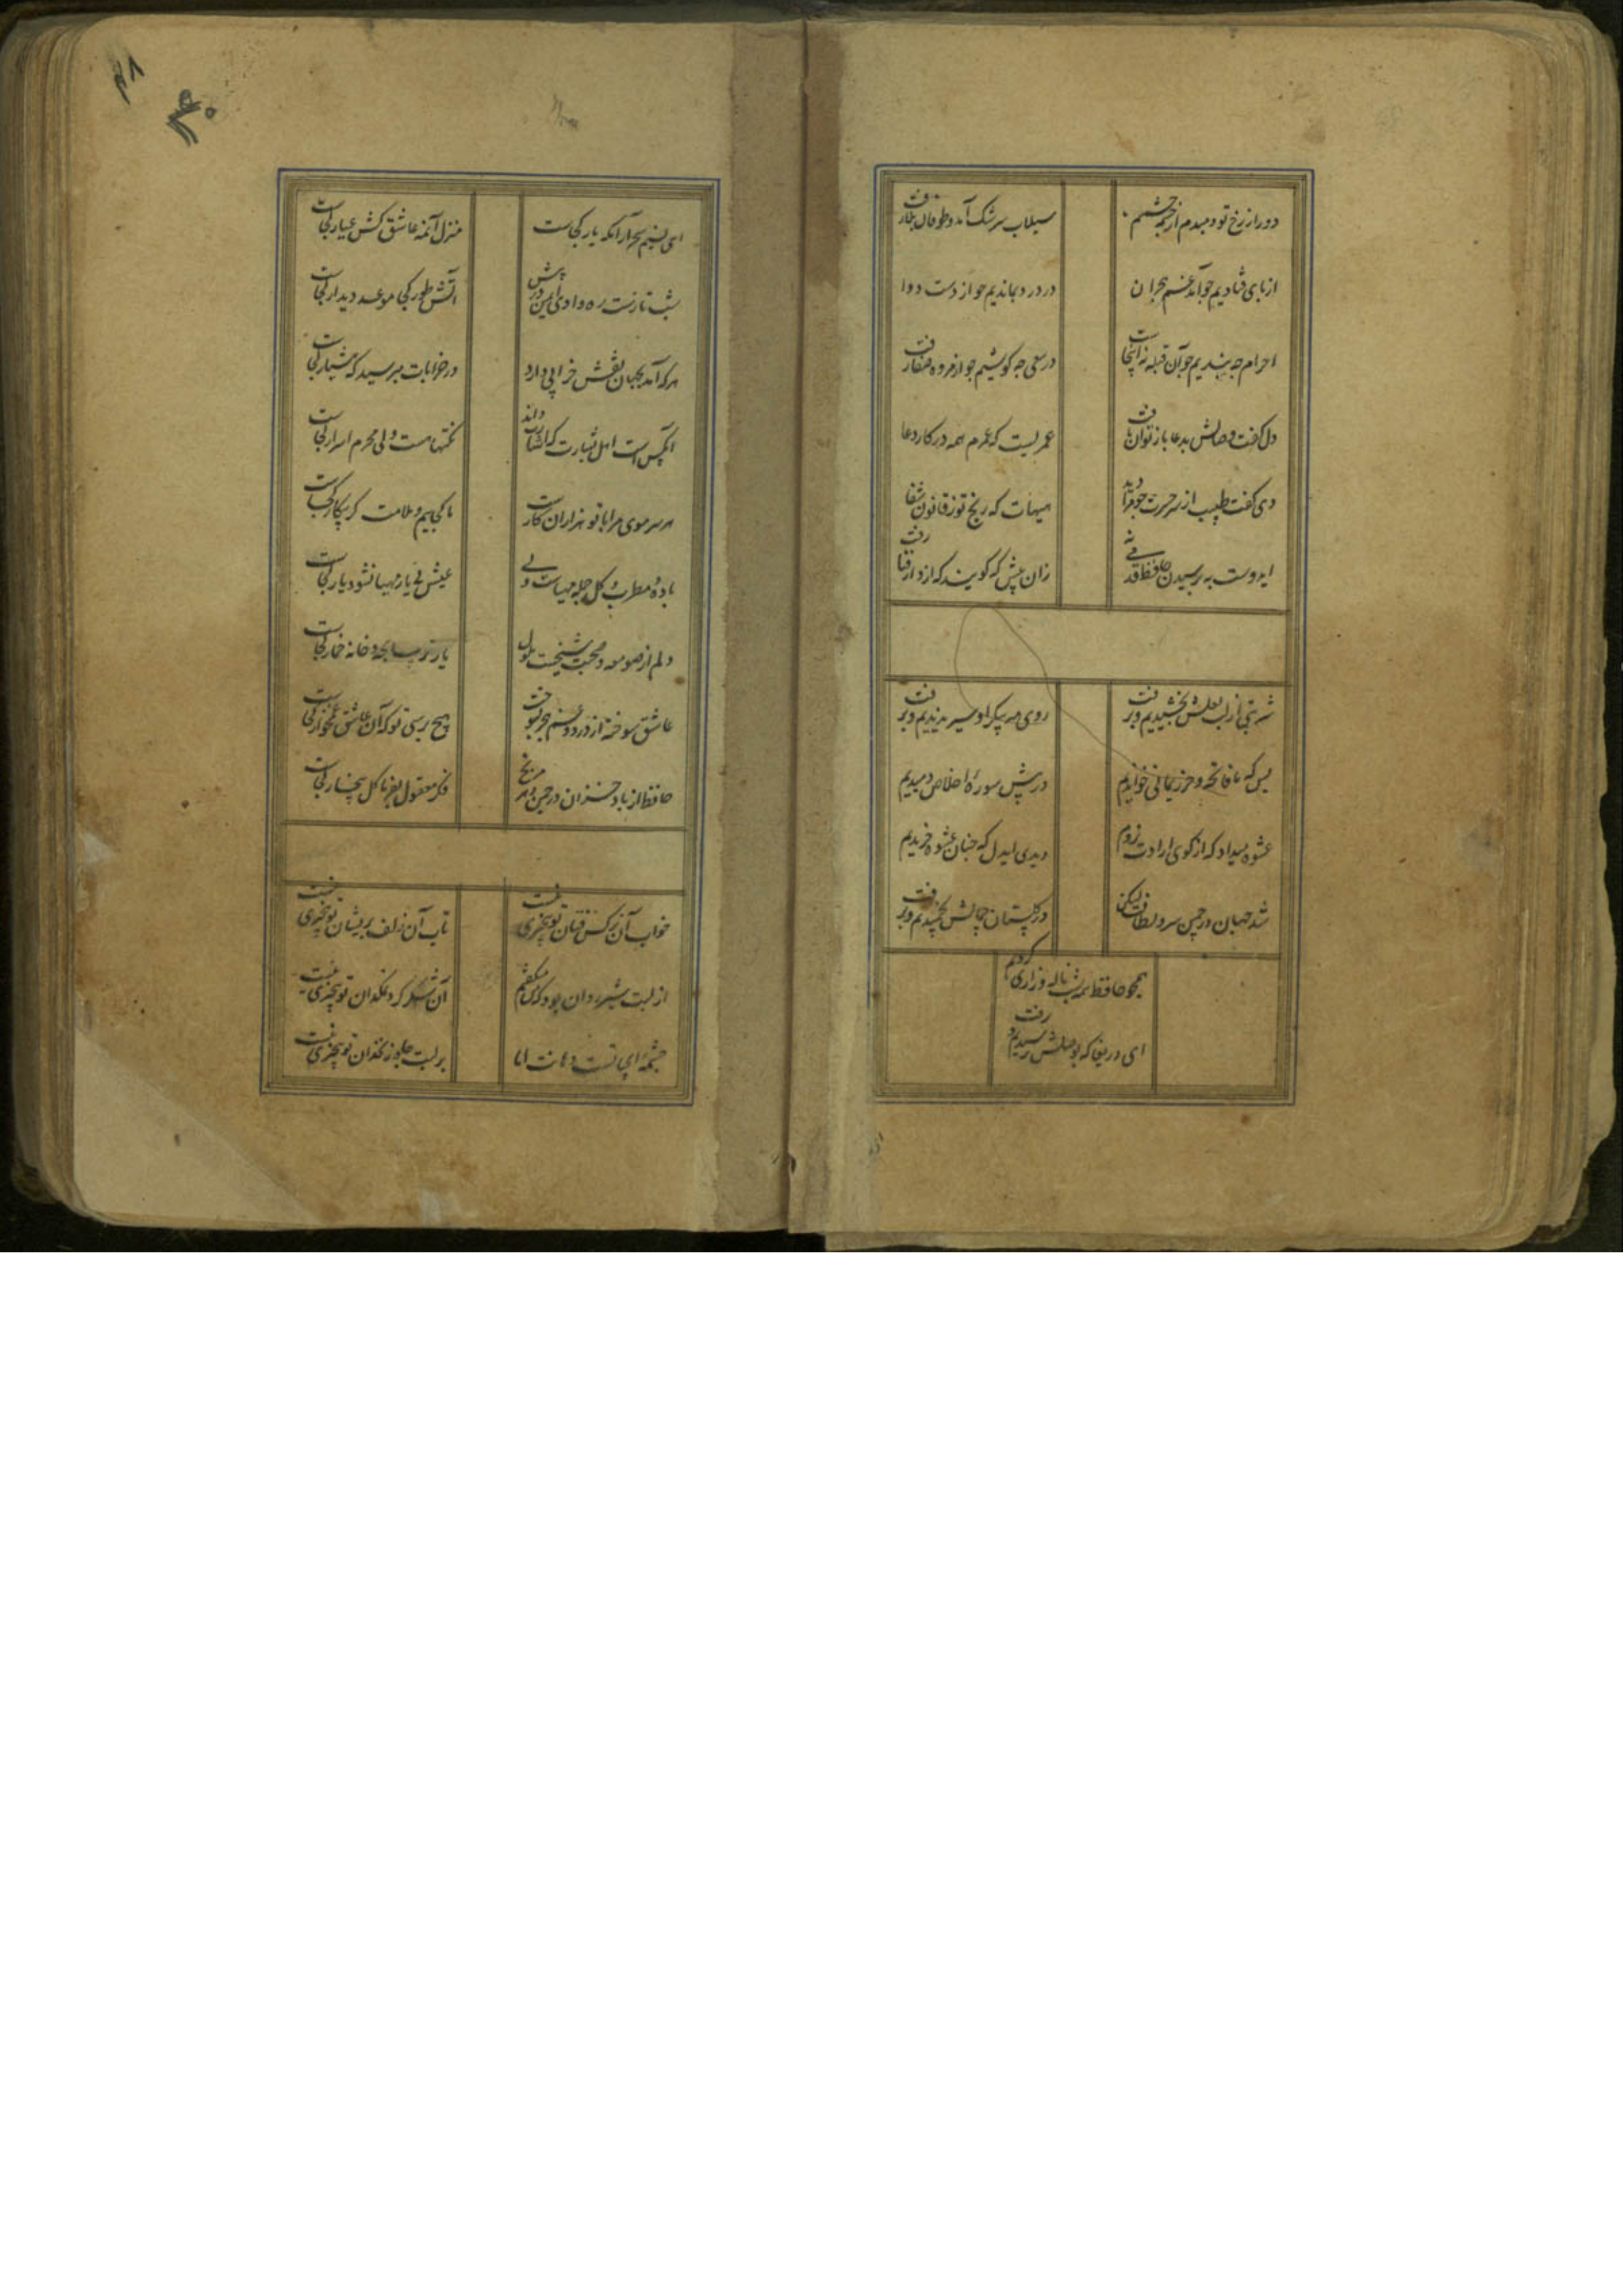 دور از رخ تو دمبدم از چشمه چشمم
سیلاب سرشک آمد و طوفان بلا رفت
از پای فتادیم چو آمد غم هجران
در درد بماندیم چو از دست دوا رفت
احرام چه بندیم چو آن قبله نه اینجاست
در سعی چه کوشیم چو از مروه صفا رفت
دل گفت وصالش بدعا باز توان یافت
عمریست که عمرم همه در کار دعا رفت
دی گفت طبیب از سر حسرت چو مرا دید
هیهات که رنج تو ز قانون شفا رفت
ایدوست به پرسیدن حافظ قدمی نه
زان پیش که گویند که از دار فنا رفت
شربتی از لب لعلش نچشیدیم و برفت
روی مه پیکر او سیر ندیدیم و برفت
بس که ما فاتحه و حرز یمانی خواندیم
در پیش سوره اخلاص دمیدیم
عشوه میداد که از کوی ارادت نروم
دیدی ایدل که چنان عشوه خریدیم
شد چمان در چمن سرو لطافت لیکن
در گلستان جمالش نچمیدیم و برفت
همچو حافظ همه شب ناله و زاری کردیم
ای دریغا که بوصلش نرسیدیم و برفت
ای نسیم سحر آرامگه یار کجاست
منزل آن مه عاشق کش عیار کجاست
شب تارست ره وادی ایمن در پیش
آتش طور کجا موعد دیدار کجاست
هر که آمد بجهان نقش خرابی دارد
در خرابات مپرسید که هشیار کجاست
آنکس است اهل بشارت که اشارت داند
نکتها هست ولی محرم اسرار کجاست
هر سر موی مرا با تو هزاران کارست
ما کجاییم و ملامت گر بیکار کجاست
باده و مطرب و گل جمله مهیاست ولی
عیش بی یار مهیا نشود یار کجاست
دلم از صومعه و صحبت شیخست ملول
یار ترسابچه و خانه خمار کجاست
عاشق سوخته از درد و غم هجر بسوخت
هیچ پرسی تو که آن عاشق غمخوار کجاست
حافظ از باد خزان در چمن دهر مرنج
فکر معقول بفرما گل بیخار کجاست
خواب آن نرگس فتان تو بیچیزی نیست
تاب آن زلف پریشان تو بیچیزی نیست
از لبت شیر روان بود که من میگفتم
آن شکر گرد نمکدان تو بیچیزی نیست
چشمه آب حیاتست دهانت اما
بر لبت چاه زنخدان تو بیچیزی نیست